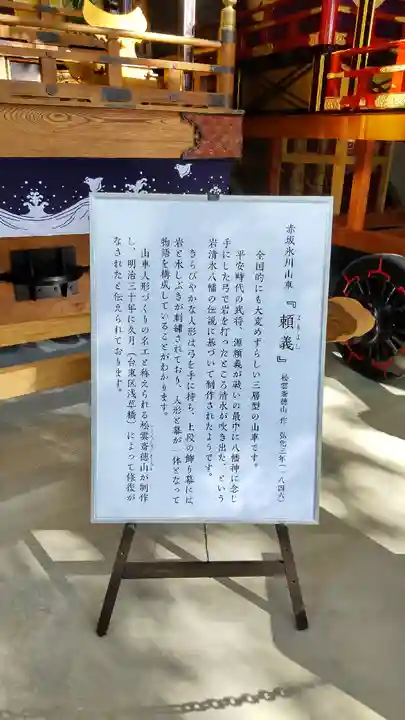 赤坂氷川山車『頼義』 松雲斎徳山 作 弘化三年(一八四六)
よりよし
全国的にも大変めずらしい三層型の山車です。
平安時代の武将、源頼義が戦いの最中に八幡神に念じ
手にした弓で岩を打ったところ清水が吹き出た、という
岩清水八幡の伝説に基づいて制作されたようです。
きらびやかな人形は弓を手に持ち、上段の飾り幕には
岩と水しぶきが刺繍されており、人形と幕が一体となって
物語を構成していることがわかります。
山車人形づくりの名工と称えられる松雲斎徳山が制作
し、明治三十年に久月(台東区浅草橋)によって修復が
なされたと伝えられております。